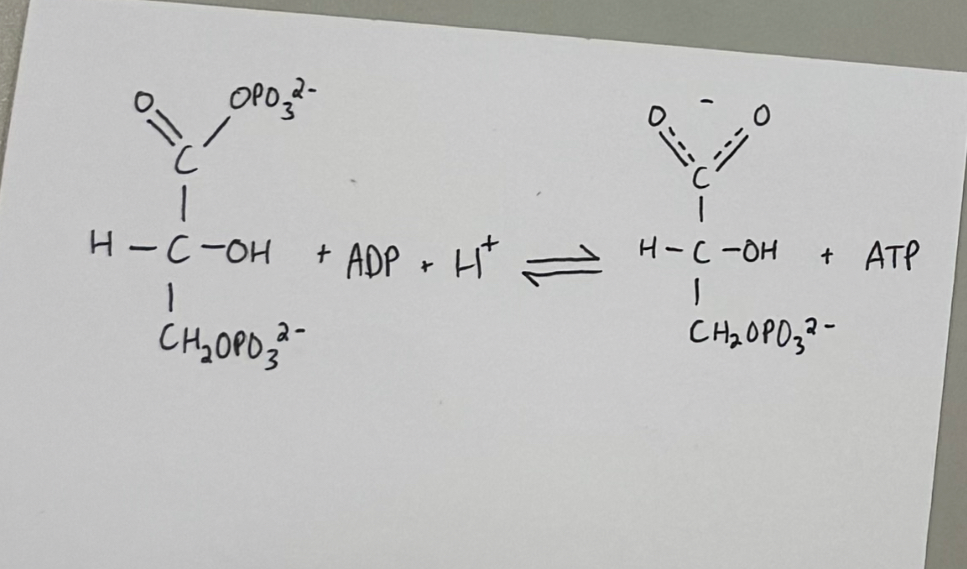 O OPO₃²⁻ O ⁻ O
C C
H – C – OH + ADP + H⁺ ⇌ H – C – OH + ATP
CH₂OPO₃²⁻ CH₂OPO₃²⁻